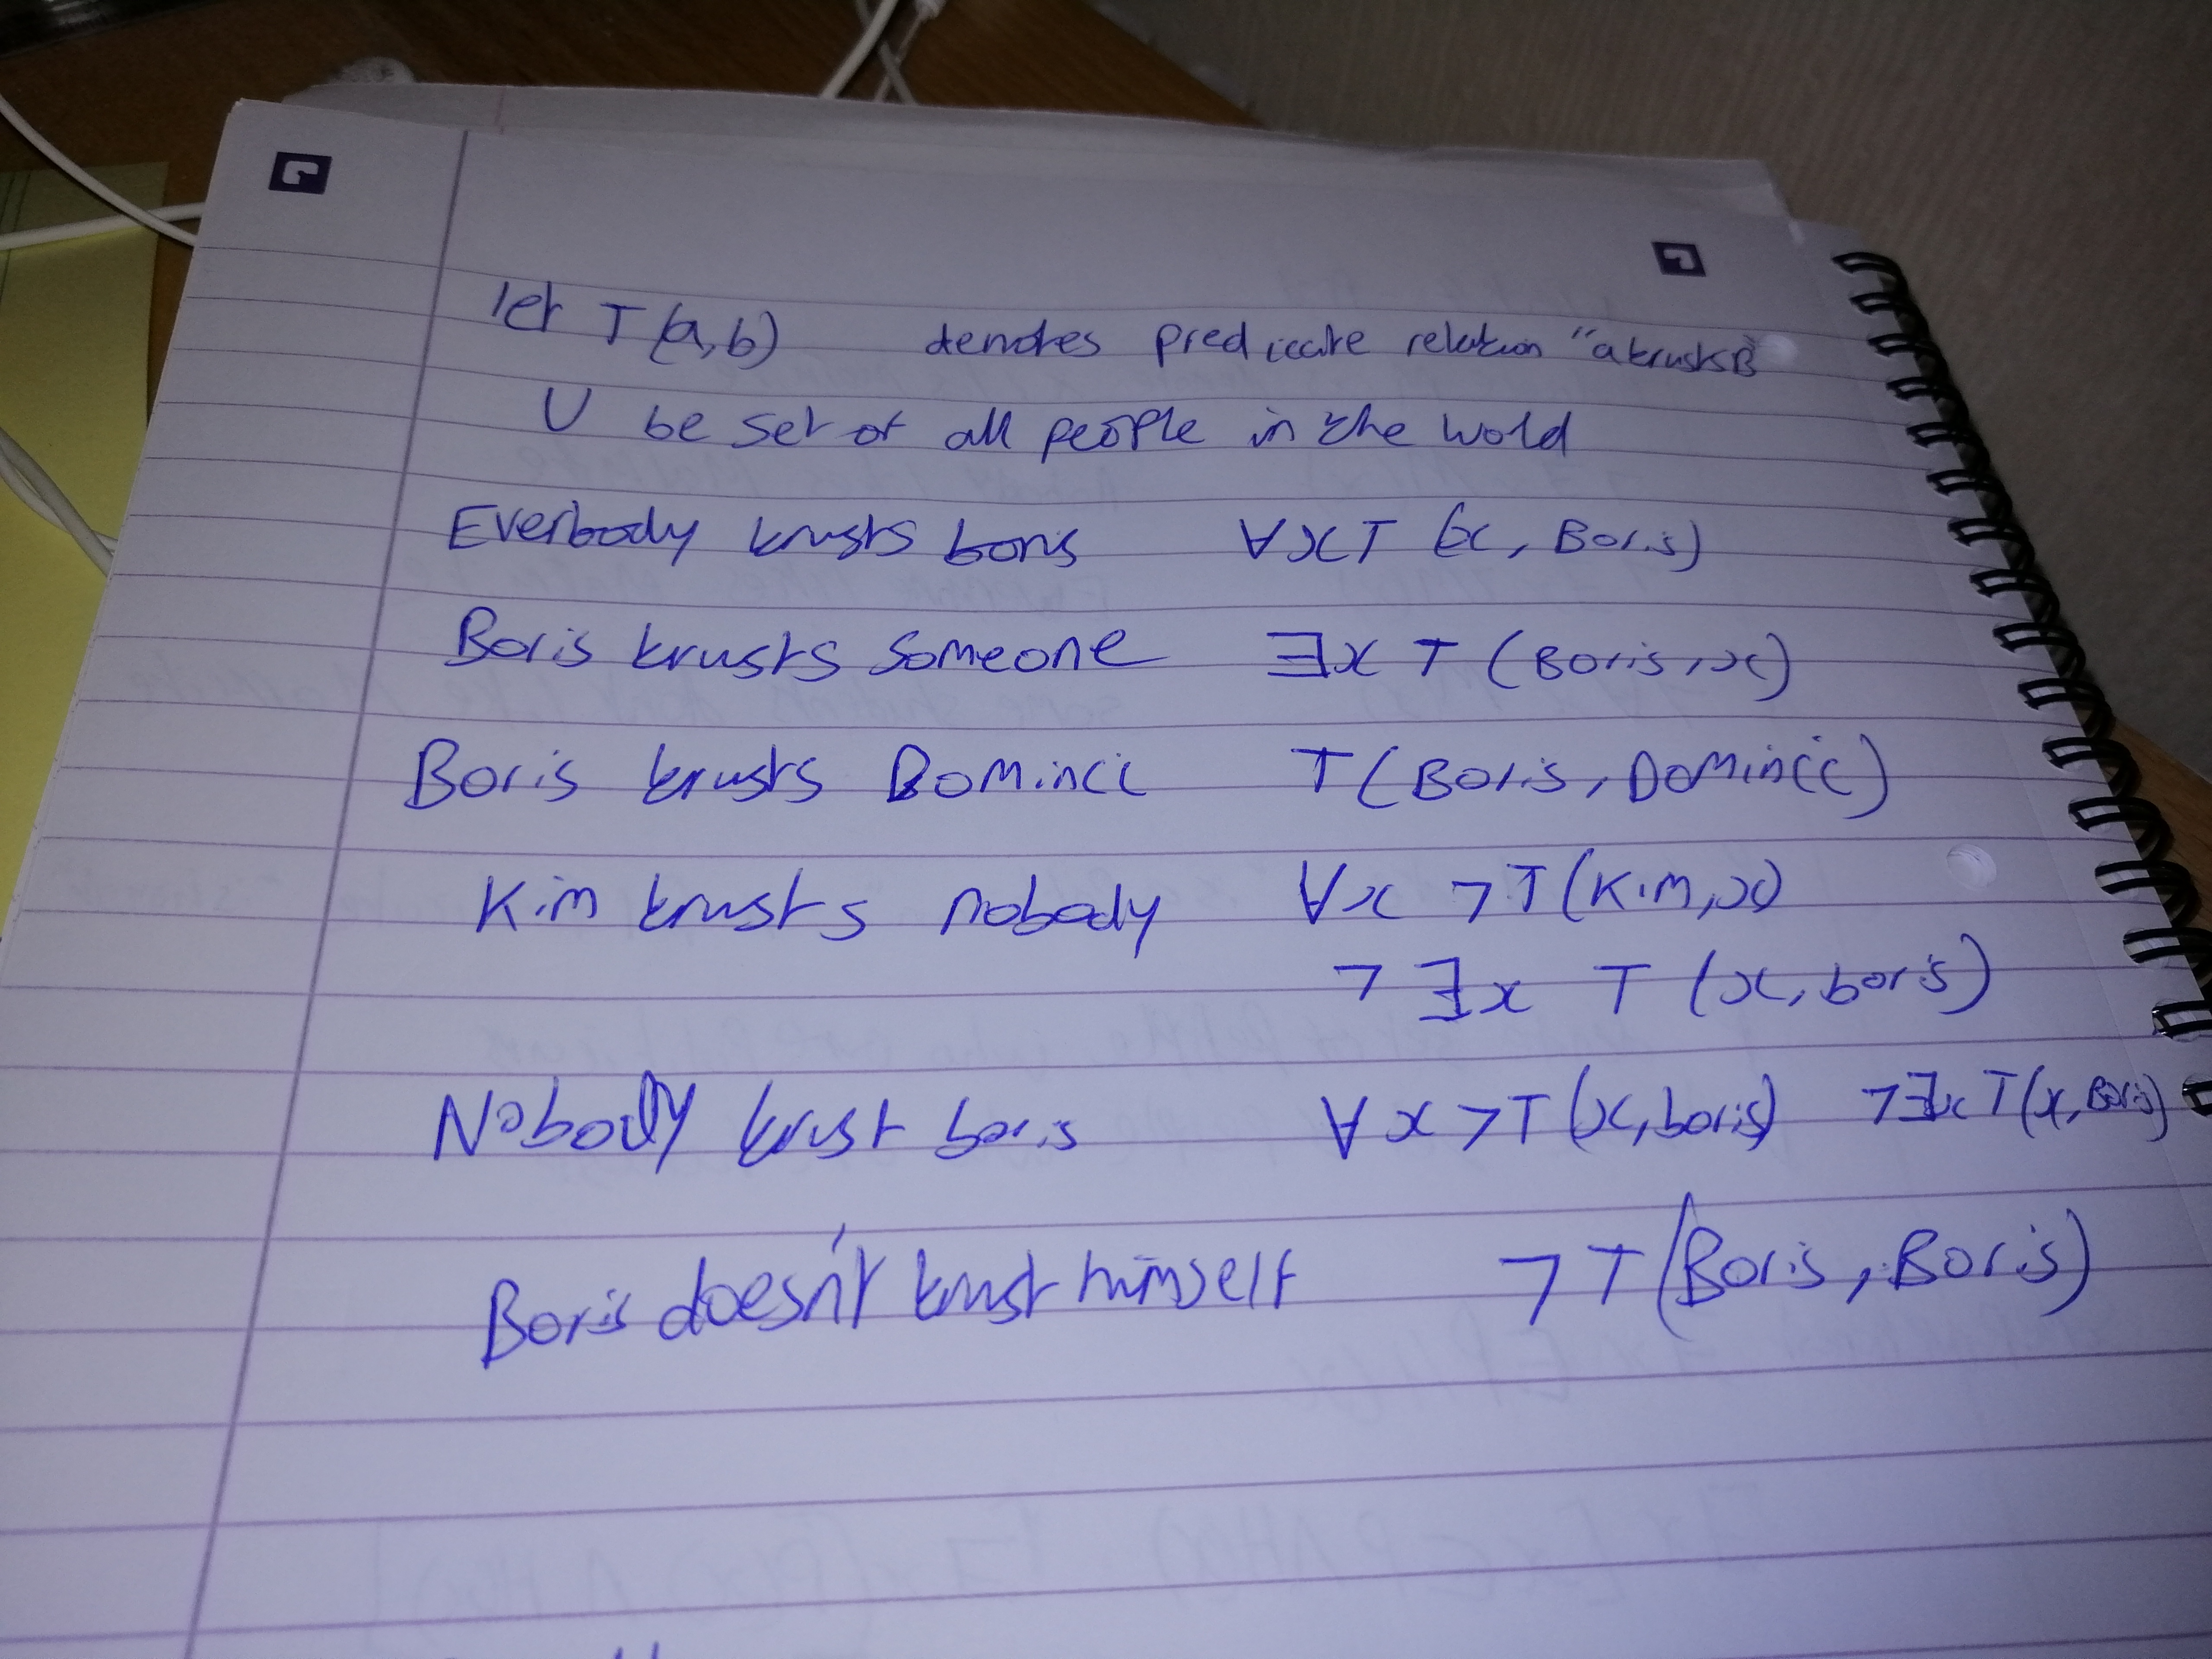 let T (a,b) denotes predicate relation "a trusts B
U be set of all people in the wold
Everbody trusts boris ∀x T (x, Boris)
Boris trusts someone ∃x T (Boris, x)
Boris trusts Domincc T(Boris, Domincc)
Kim trusts nobody ∀x ¬T(Kim,x)
¬∃x T (x, boris)
Nobody trust boris ∀x ¬T(x,boris) ¬∃x T(x, Boris)
Boris doesn't trust himself ¬T(Boris, Boris)